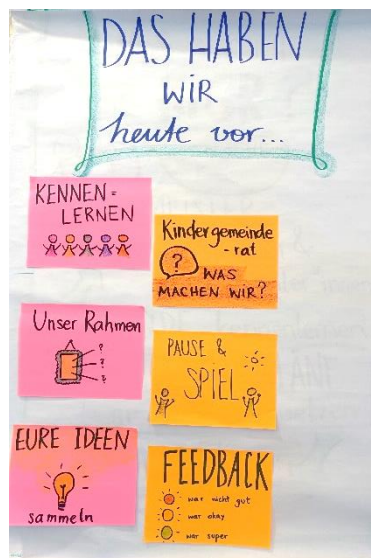 DAS HABEN
WIR
heute vor...
KENNEN=
LERNEN
Kindergemeinde
-rat
?
WAS
MACHEN WIR?
Unser Rahmen
?
?
?
PAUSE &
SPIEL
EURE IDEEN
sammeln
FEEDBACK
war nicht gut
war okay
war super